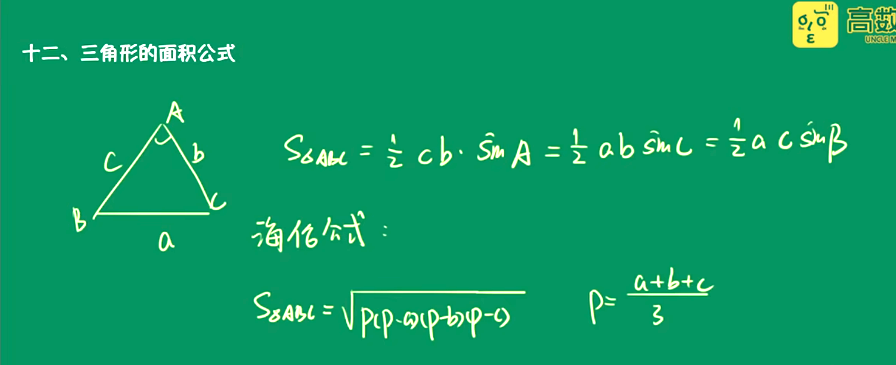 高数
UNCLE M
十二、三角形的面积公式
A
c b
S△ABC = 1/2 cb·sinA = 1/2 ab sinC = 1/2 ac sinB
B C
a
海伦公式：
S△ABC = √p(p-a)(p-b)(p-c) p = (a+b+c)/3